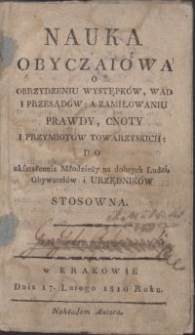 NAUKA
OBYCZAIOWA
O
OBRZYDZENIU WYSTĘPKÓW, WAD
I PRZESĄDÓW; A ZAMIŁOWANIU
PRAWDY, CNOTY
I PRZYMIOTÓW TOWARZYSKICH:
DO
ukształcenia Młodzieży na dobrych Ludzi,
Obywatelów i URZĘDNIKÓW
STOSOWNA.
w KRAKOWIE
Dnia 17. Lutego 1810 Roku.
Nakładem Autora.